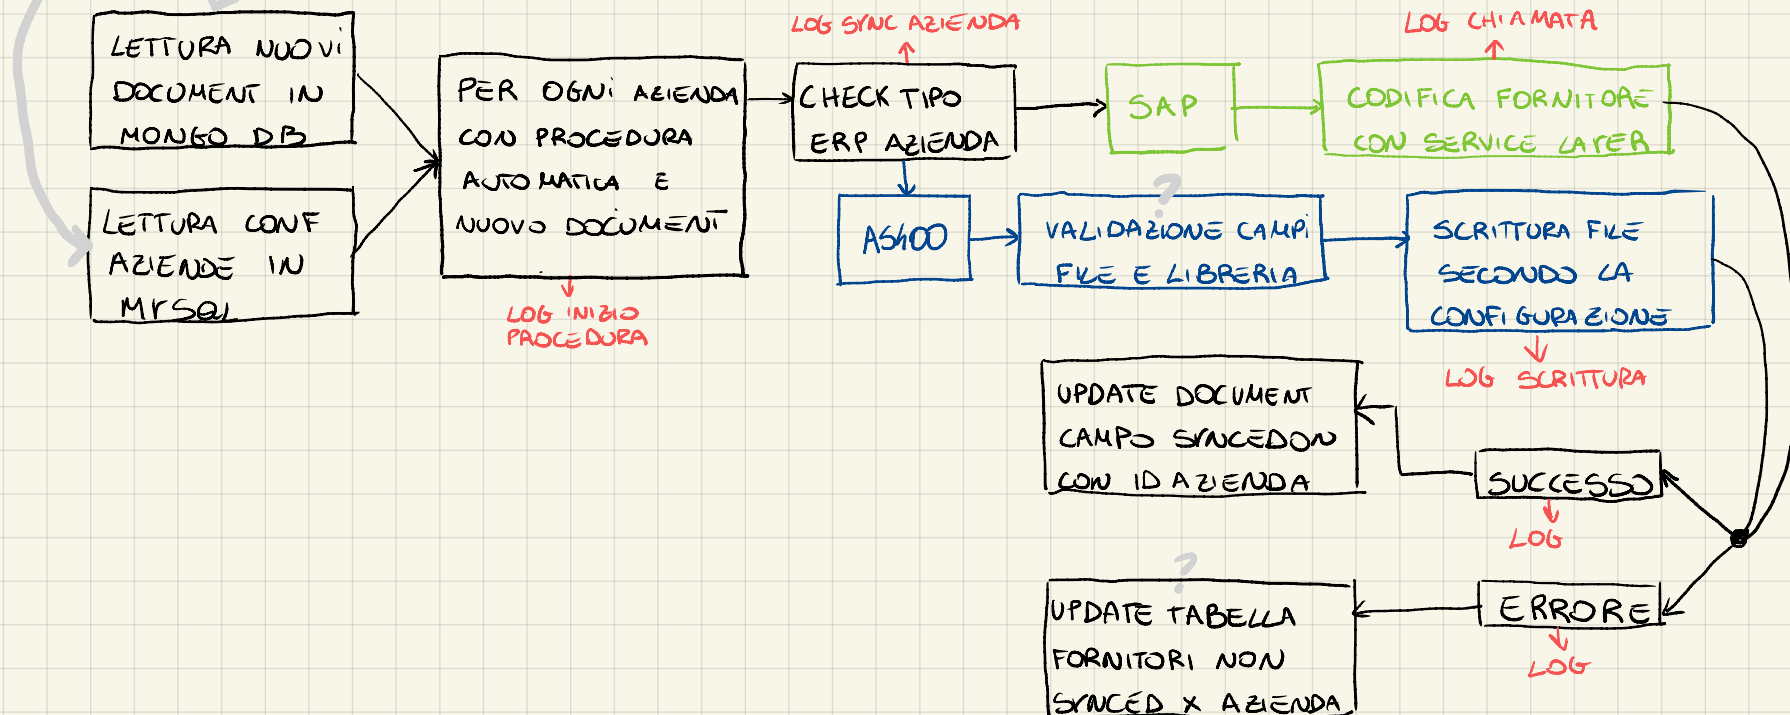 LETTURA NUOVI
DOCUMENT IN
MONGO DB
LETTURA CONF
AZIENDE IN
MYSQL
PER OGNI AZIENDA
CON PROCEDURA
AUTOMATICA E
NUOVO DOCUMENT
LOG INIZIO
PROCEDURA
LOG SYNC AZIENDA
CHECK TIPO
ERP AZIENDA
SAP
LOG CHIAMATA
CODIFICA FORNITORE
CON SERVICE LAYER
AS400
?
VALIDAZIONE CAMPI
FILE E LIBRERIA
SCRITTURA FILE
SECONDO LA
CONFIGURAZIONE
LOG SCRITTURA
UPDATE DOCUMENT
CAMPO SYNCEDON
CON ID AZIENDA
SUCCESSO
LOG
?
UPDATE TABELLA
FORNITORI NON
SYNCED X AZIENDA
ERRORE
LOG